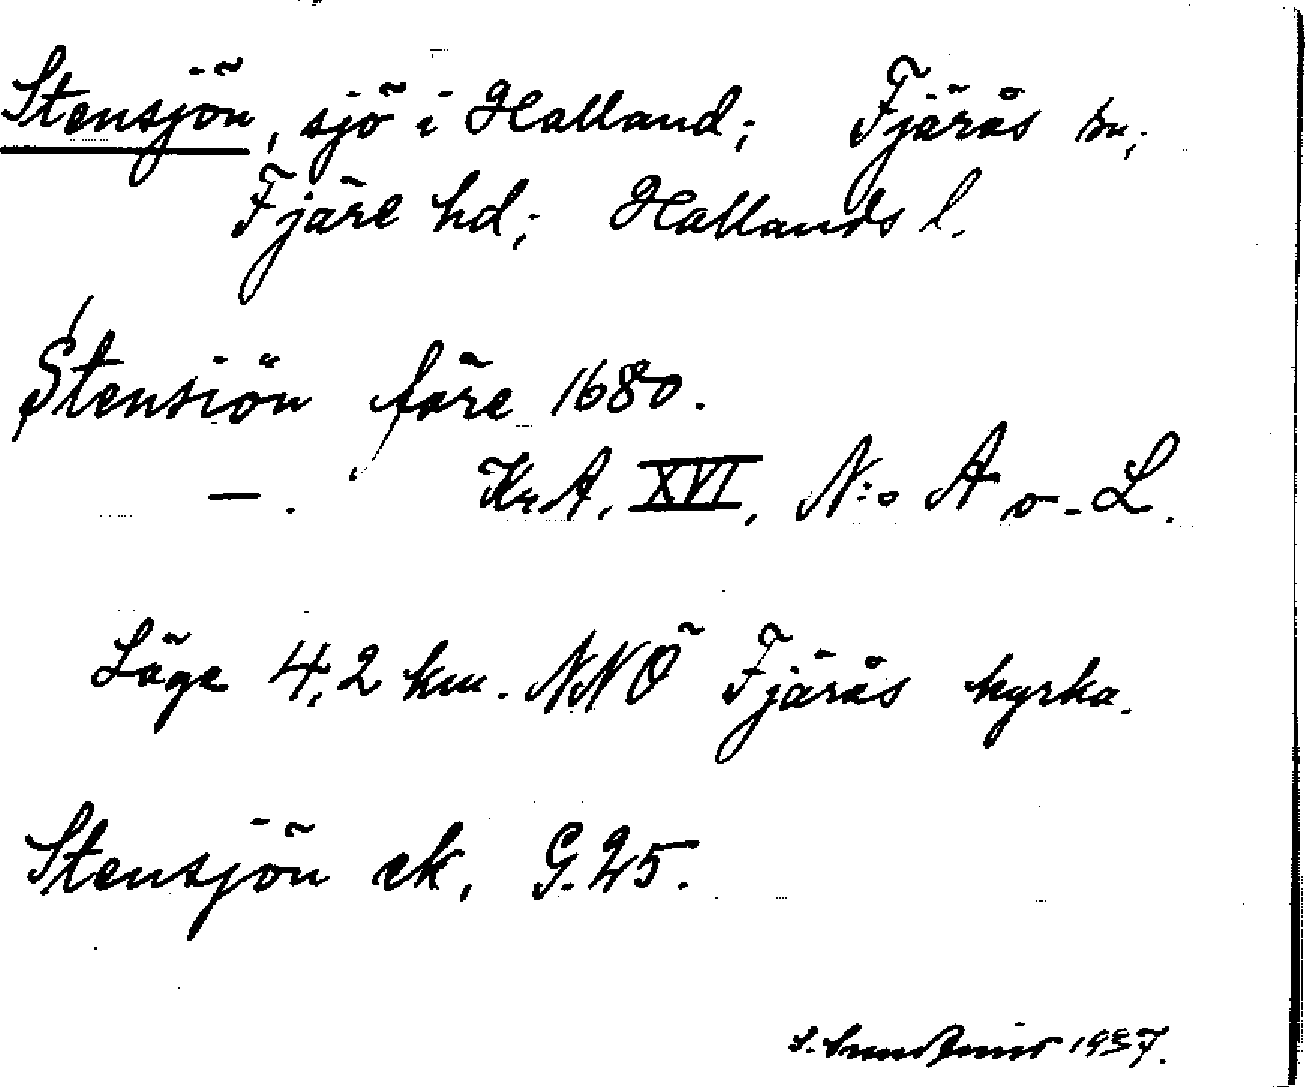 Stensjön, sjö i Halland; Fjärås sn,;
Fjäre hd; Hallands l.
Stensiön före 1680.
—. KrA, XVI, N:o A o - L.
Läge 4,2 km. NNÖ Fjärås kyrka.
Stensjön ek, G.25.
S. 1937.